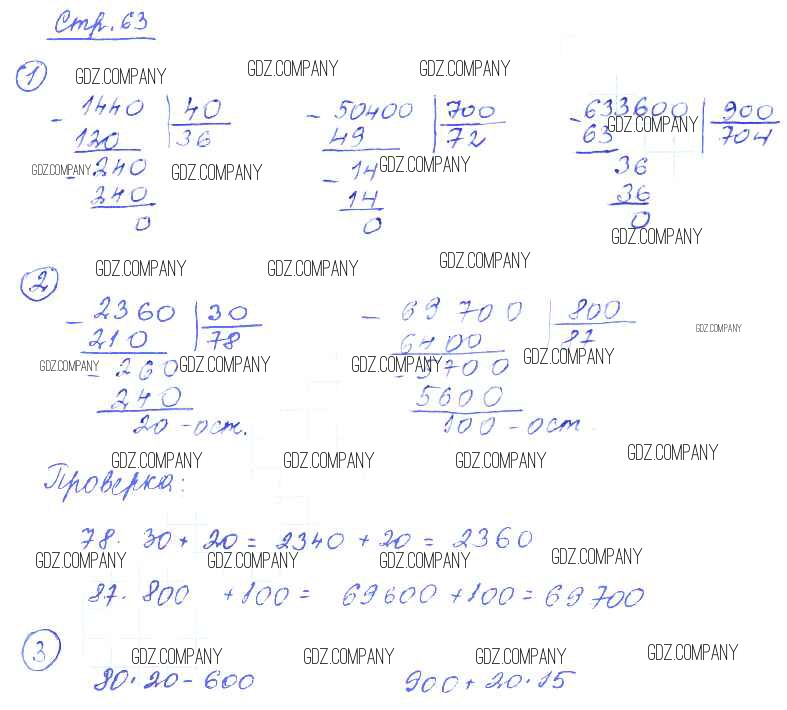 Стр. 63
1 GDZ.COMPANY GDZ.COMPANY GDZ.COMPANY
- 1440 40 - 50400 700 - 633600 900
120 36 49 72 63 GDZ.COMPANY 704
GDZ.COMPANY - 240 GDZ.COMPANY - 14 GDZ.COMPANY 36
240 14 36
0 0 0
GDZ.COMPANY
2 GDZ.COMPANY GDZ.COMPANY GDZ.COMPANY
- 2360 30 - 69700 800
210 78 6400 87 GDZ.COMPANY
GDZ.COMPANY - 260 GDZ.COMPANY GDZ.COMPANY - 5700 GDZ.COMPANY
240 5600
20 - ост. 100 - ост.
GDZ.COMPANY GDZ.COMPANY GDZ.COMPANY GDZ.COMPANY
Проверка:
78 · 30 + 20 = 2340 + 20 = 2360
GDZ.COMPANY GDZ.COMPANY GDZ.COMPANY GDZ.COMPANY
87 · 800 + 100 = 69600 + 100 = 69700
3 GDZ.COMPANY GDZ.COMPANY GDZ.COMPANY GDZ.COMPANY
80 · 20 - 600 900 + 20 · 15